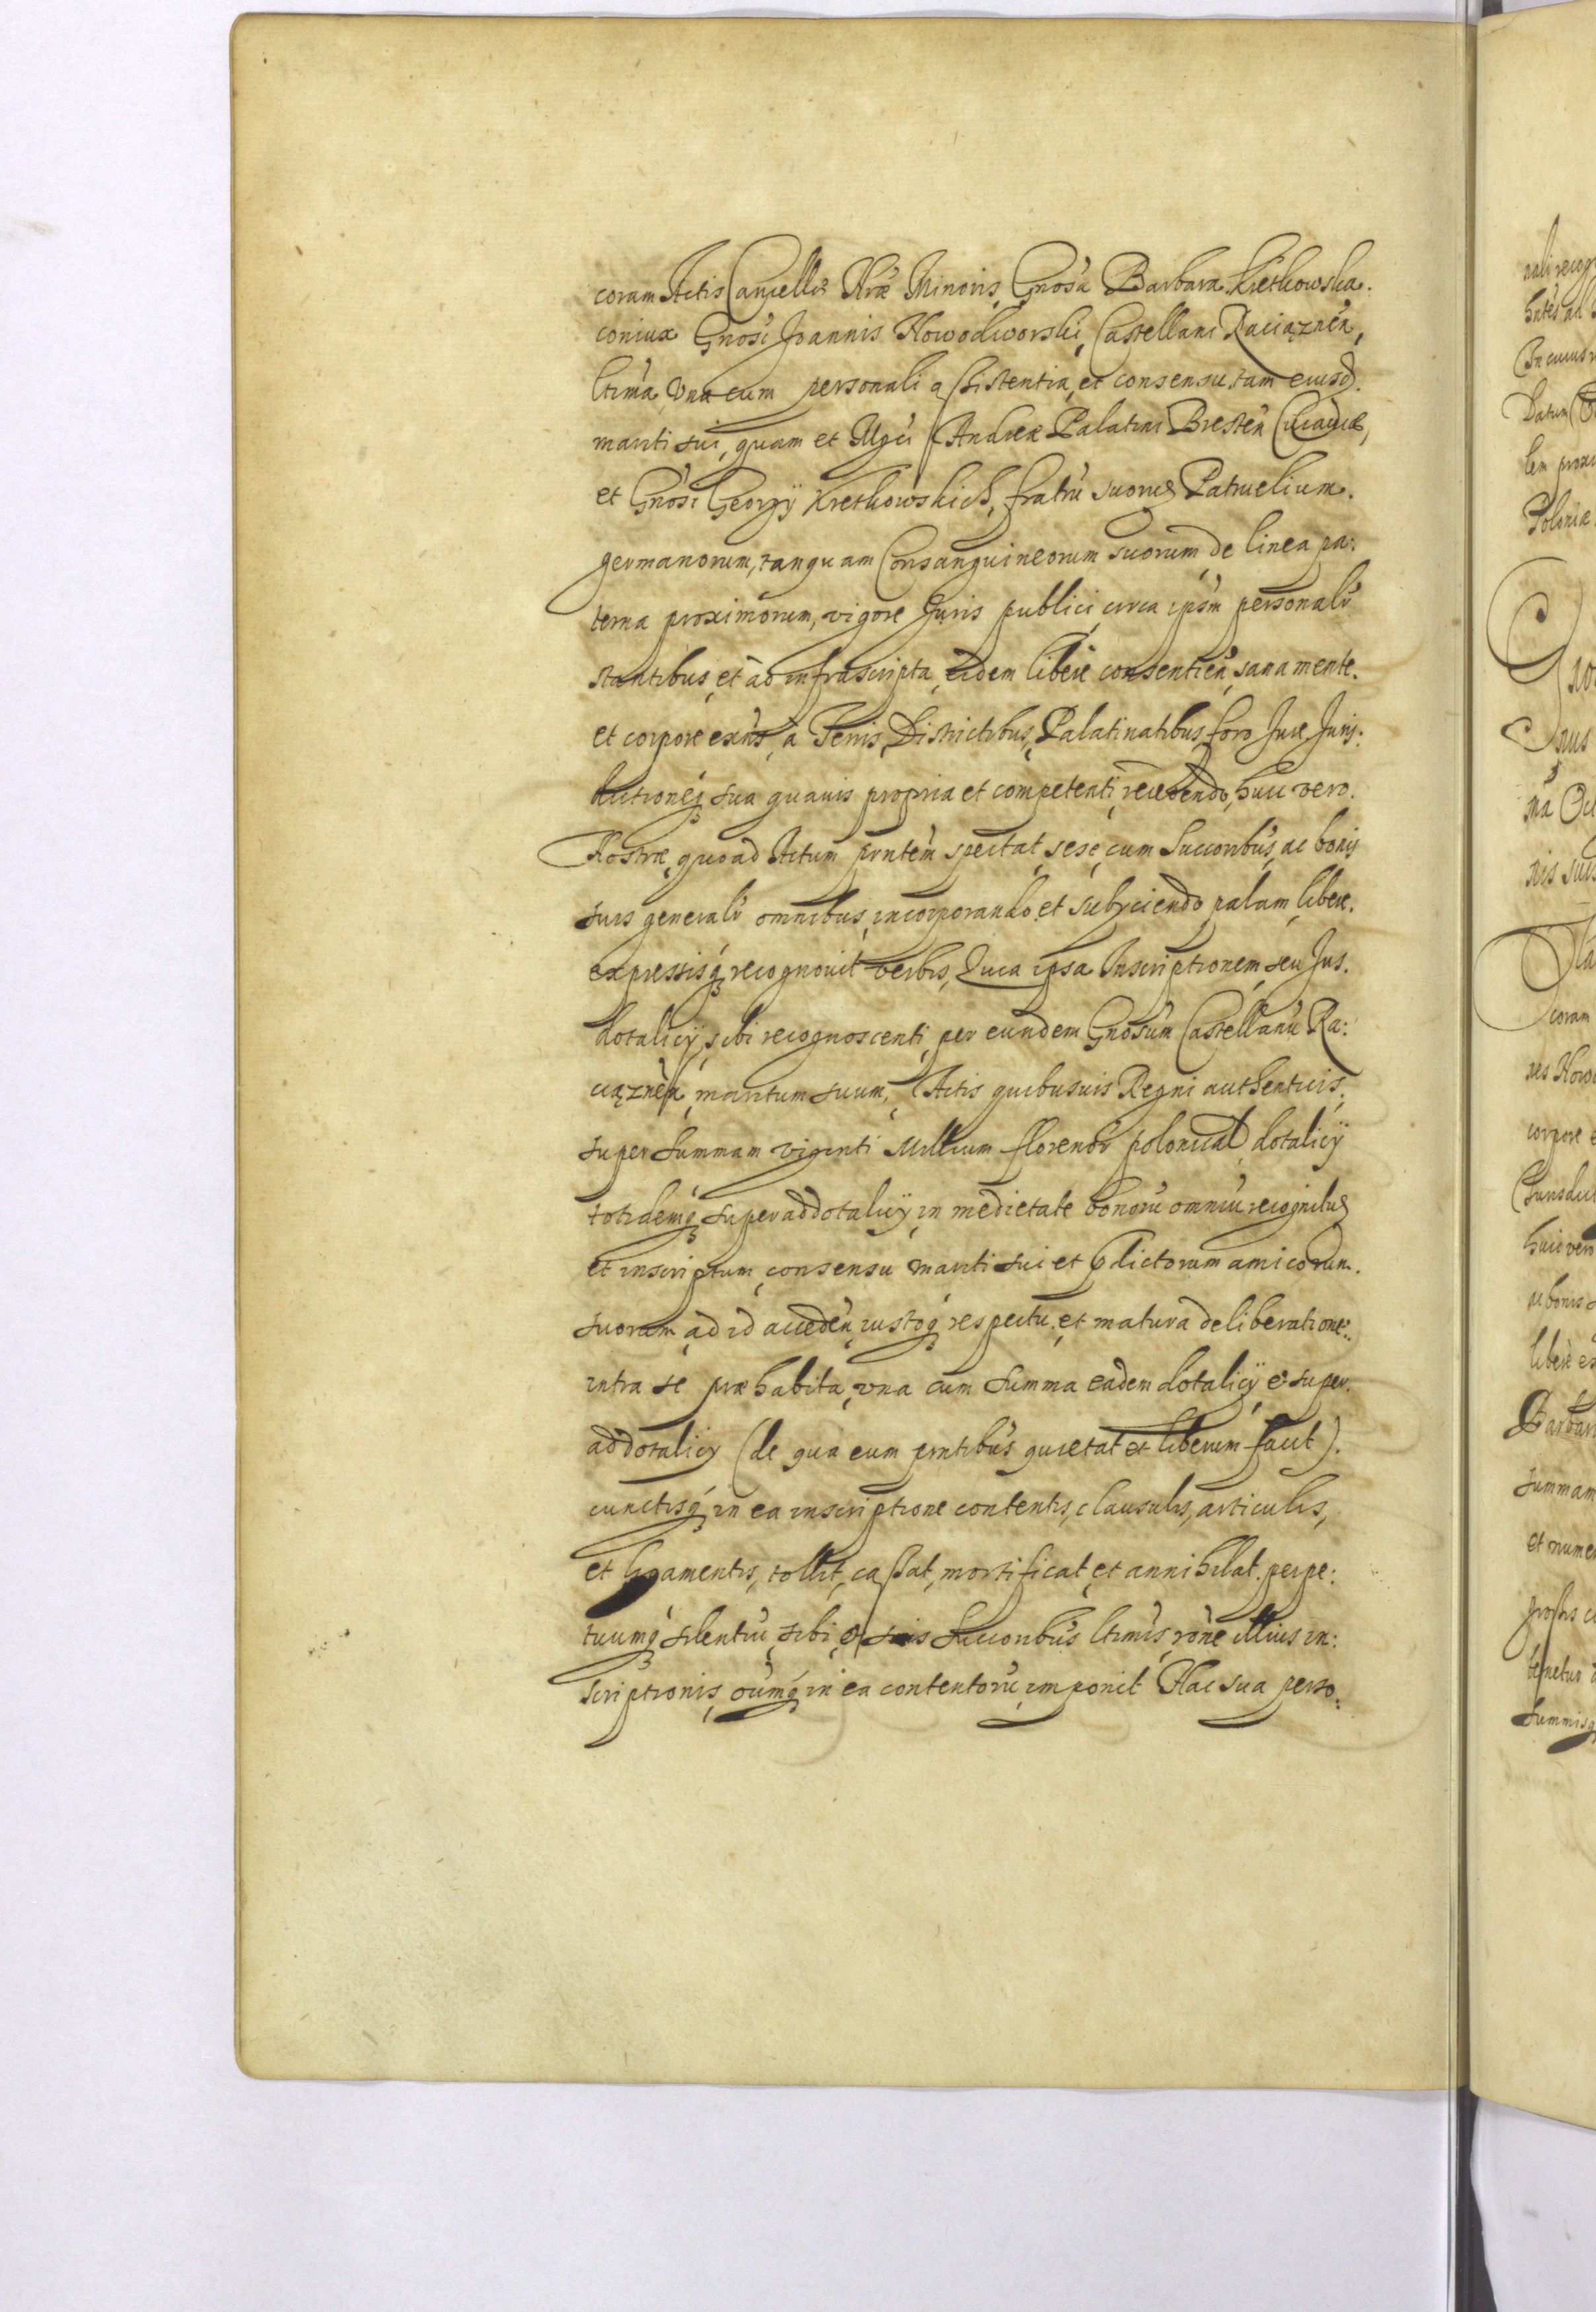 coram Actis Cancellr. Nrae Minoris, Gnosa Barbara Kretkowska.
coniux Gnosi Joannis Nowodworski, Castellani Raciąznen,
ltima, Vna cum personali assistentia, et consensu, tam eiusd.
mariti sui, quam et Mgci Andreae Palatini Bresten Cuiauiae,
et Gnosi Georgÿ Kretkowskich, fratru suoru Patruelium.
germanorum, tanquam Consanguineorum suorum de linea pa:
terna proximorum, vigore Juris publici, circa ipsm personalr
stantibus, et ad infrascripta, eidem libere consentien, sana mente.
et corpore exns, a Terris, Districtibus, Palatinatibus, foro Jure Juris:
dictioneq sua quauis propria et competenti, recedendo, huic vero.
Nostrae, quoad Actum pntem spectat, sese, cum Succoribus, ac bonis
suis generalr omnibus, incorporando et subyciendo, palam, libere.
expressisq recognouit verbis, Quia ipsa Inscriptionem, seu Jus.
dotalicÿ, sibi recognoscenti, per eundem Gnosum Castellanu Ra:
ciąznen, maritum suum, Actis quibusuis Regni authenticis,
super Summam viginti Millium florenor polonical, dotalicÿ
totidemq superaddotalicÿ, in medietate bonoru omniu recognitu
et inscriptum, consensu mariti sui et pdictorum amicorum.
suorum, ad id acceden, iustoq respectu, et matura deliberatione.
intra se praehabita, vna cum Summa eadem dotalicÿ et super.
addotalicÿ (de qua eum pntibus quietat et liberum facit).
cunctisq in ea inscriptione contentis, clausulis, articulis,
et ligamentis, tollit, cassat, mortificat, et annihilat. perpe:
tuumq silentiu, sibi, et suis Succoribus ltimis, rone illius in:
scriptionis, oiumq in ea contentoru, imponit Hac sua perso: